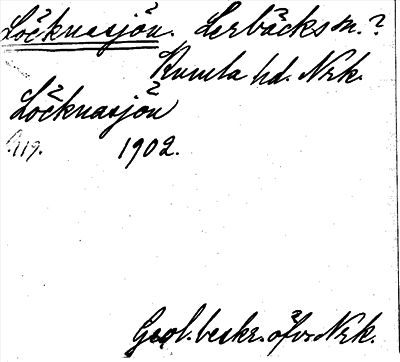 Löcknasjön. Lerbäcks sn.?
Kumla hd. Nrk.
Löcknasjön
119. 1902.
Geol. beskr. öfv. Nrk.